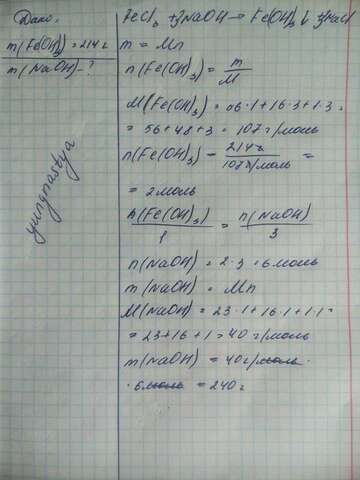 Дано:
m(Fe(OH)3) = 214 г
m(NaOH) - ?
yungnastya
FeCl3 + 3NaOH → Fe(OH)3↓ + 3NaCl
m = Mn
n(Fe(OH)3) = m/M
M(Fe(OH)3) = 56·1+16·3+1·3 =
= 56+48+3 = 107 г/моль
n(Fe(OH)3) = 214г/107г/моль =
= 2 моль
n(Fe(OH)3)/1 = n(NaOH)/3
n(NaOH) = 2·3 = 6 моль
m(NaOH) = Mn
M(NaOH) = 23·1+16·1+1·1=
= 23+16+1 = 40 г/моль
m(NaOH) = 40г/моль·
·6моль = 240г